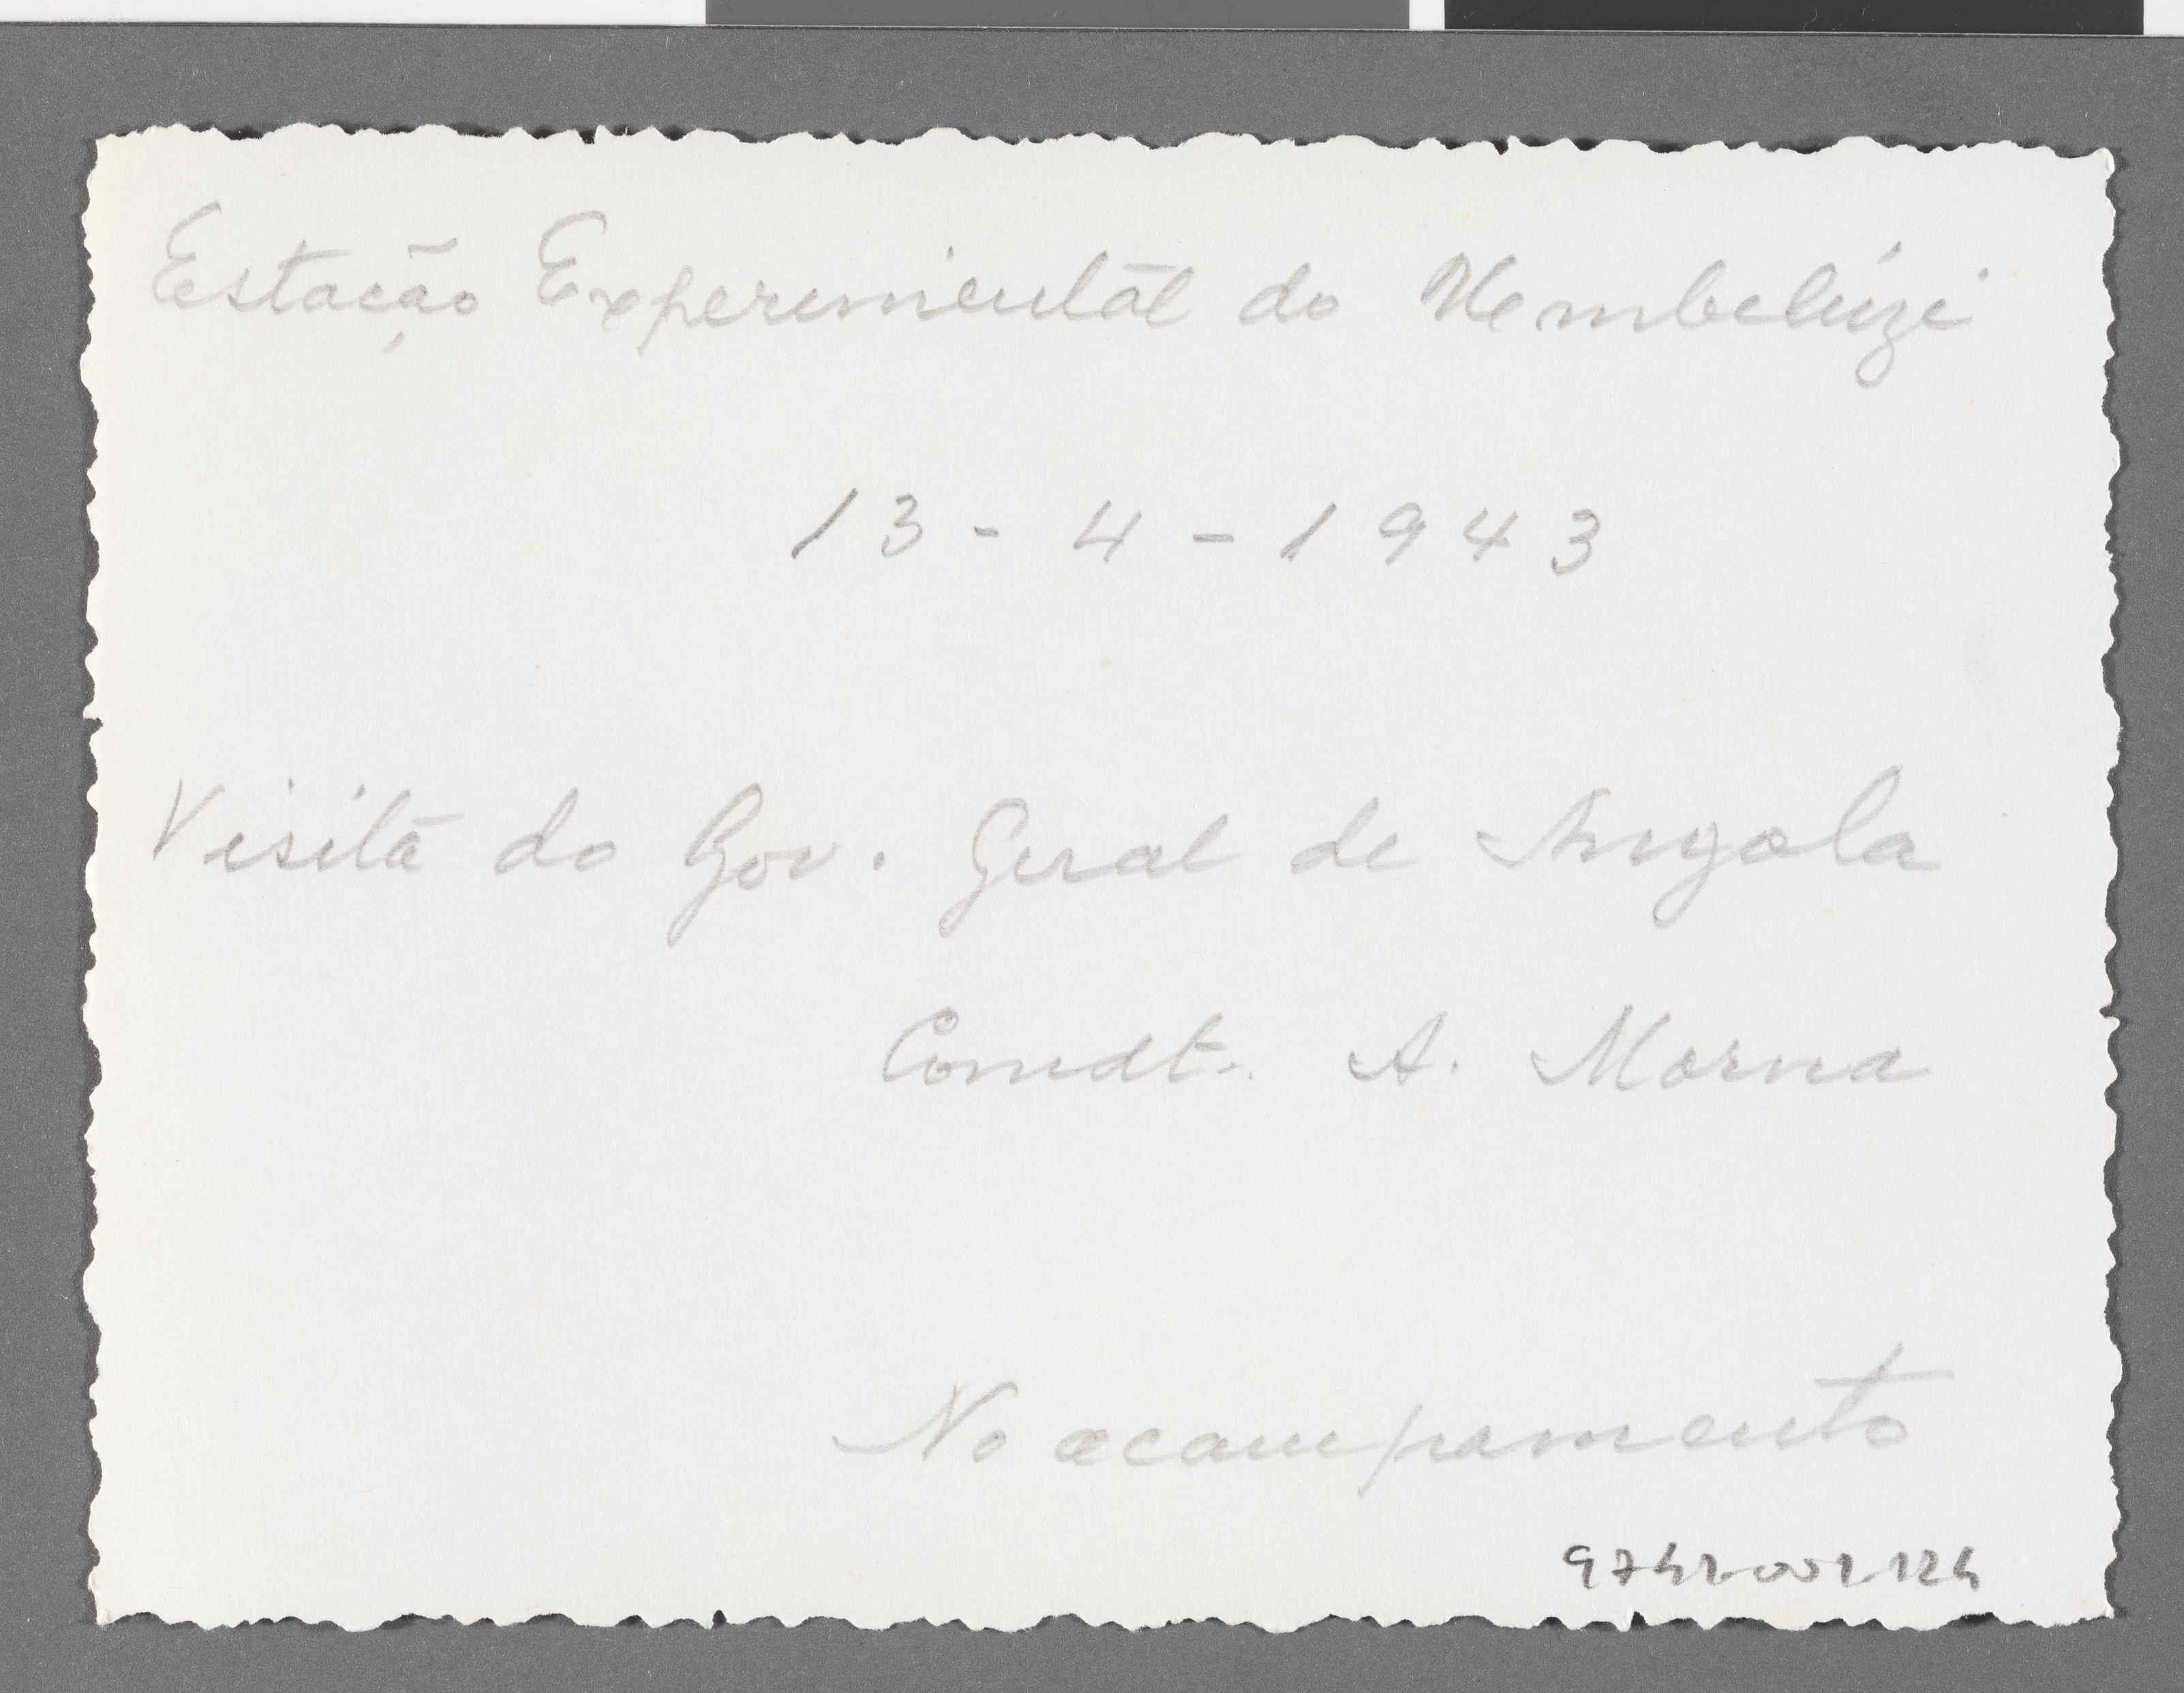 Estação Experimental do Umbelúzi
13-4-1943
Visita do Gov. Geral de Angola
Comdt. A. Morna
No acampamento